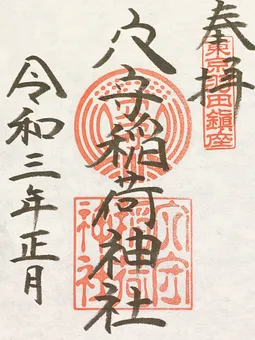 奉拝
東京羽田鎮座
穴守稲荷神社
穴守
稲荷
神社
令和三年正月